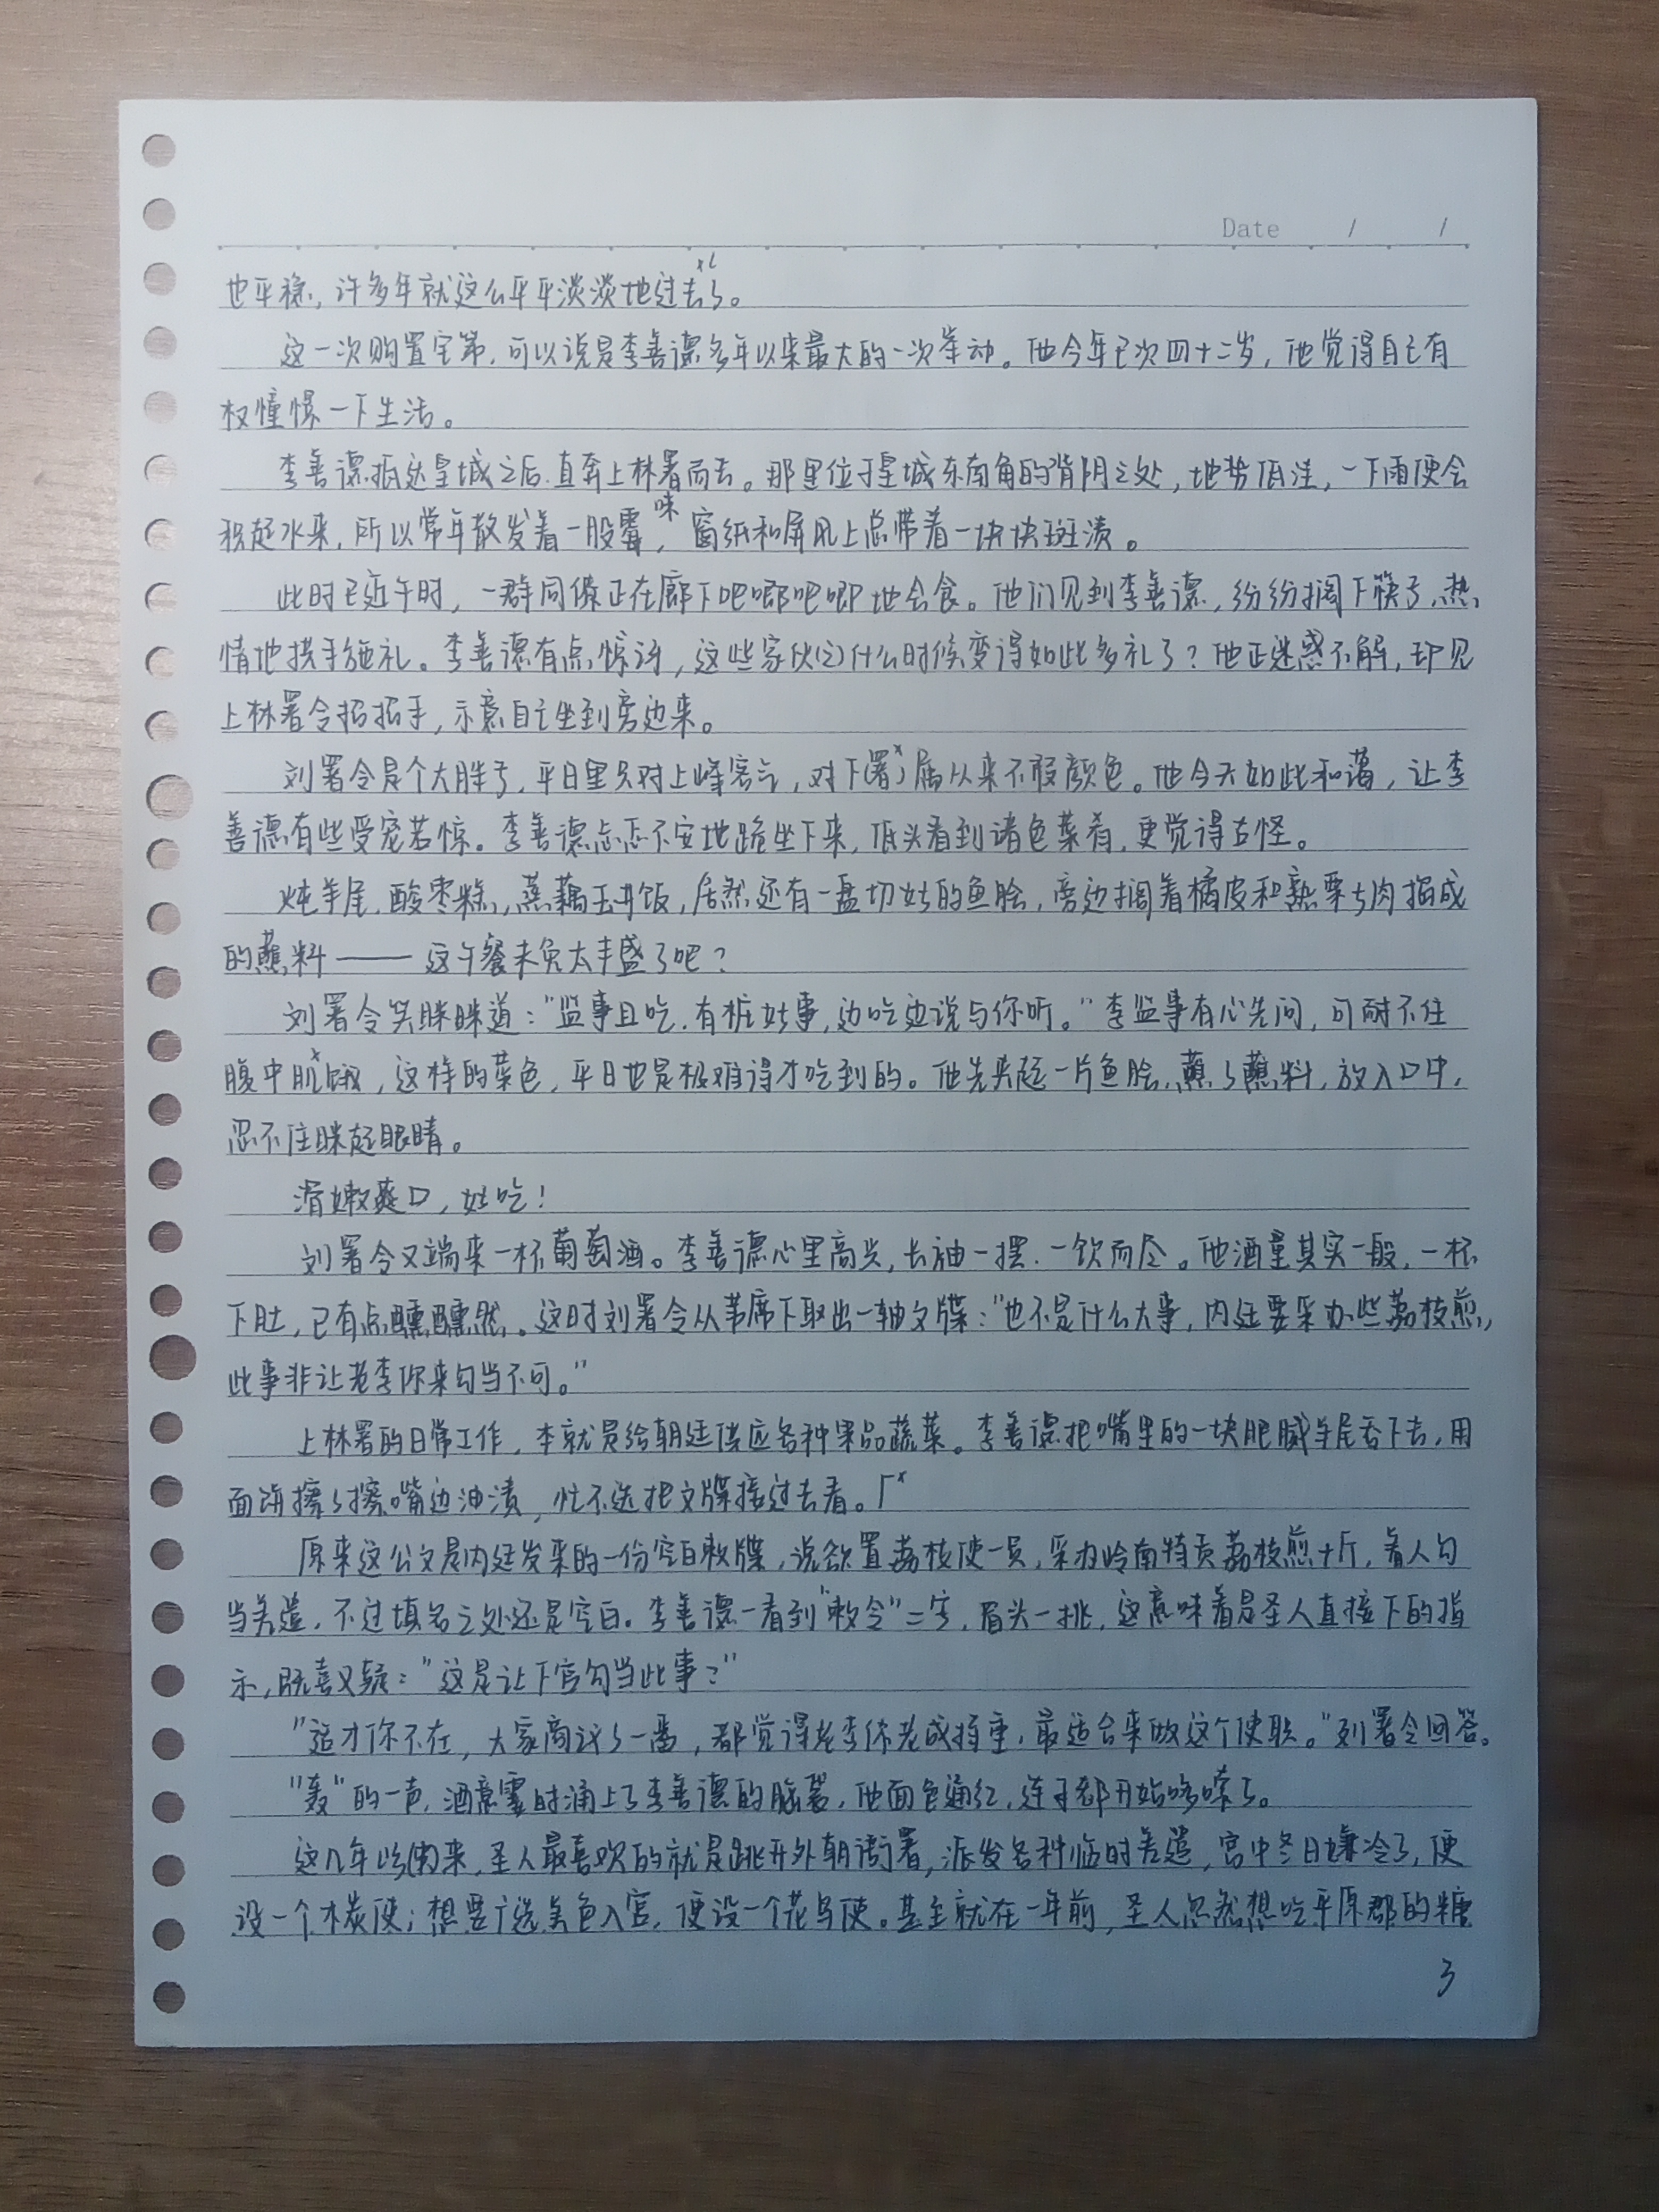 Date / /
也平稳，许多年就这么平平淡淡地过去了。
这一次购置宅第，可以说是李善德多年以来最大的一次举动。他今年已次四十二岁，他觉得自己有
权憧憬一下生活。
李善德抵达皇城之后，直奔上林署而去。那里位于皇城东南角的背阴之处，地势低洼，一下雨便会
积起水来，所以常年散发着一股霉味，窗纸和屏风上总带着一块块斑渍。
此时已近午时，一群同僚正在廊下吧唧吧唧地会食。他们见到李善德，纷纷搁下筷子，热
情地拱手施礼。李善德有点惊讶，这些家伙什么时候变得如此多礼了？他正迷惑不解，却见
上林署令招招手，示意自己坐到旁边来。
刘署令是个大胖子，平日里只对上峰客气，对下(署)属从来不假颜色。他今天如此和蔼，让李
善德有些受宠若惊。李善德忐忑不安地跪坐下来，低头看到诸色菜肴，更觉得古怪。
炖羊尾，酸枣糕，蒸藕玉井饭，居然还有一盘切好的鱼脍，旁边搁着橘皮和熟栗子肉捣成
的蘸料——这午餐未免太丰盛了吧？
刘署令笑眯眯道：“监事且吃，有桩好事，边吃边说与你听。”李监事有心先问，可耐不住
腹中肌饿，这样的菜色，平日也是极难得才吃到的。他先夹起一片鱼脍，蘸了蘸料，放入口中，
忍不住眯起眼睛。
滑嫩爽口，好吃！
刘署令又端来一杯葡萄酒。李善德心里高兴，长袖一摆，一饮而尽。他酒量其实一般，一杯
下肚，已有点醺醺然。这时刘署令从苇席下取出一轴文牒：“也不是什么大事，内廷要采办些荔枝煎，
此事非让老李你来勾当不可。”
上林署的日常工作，本就是给朝廷供应各种果品蔬菜。李善德把嘴里的一块肥腻羊尾吞下去，用
面饼擦了擦嘴边油渍，忙不迭把文牒接过去看。「
原来这公文是内廷发来的一份空白敕牒，说欲置荔枝使一员，采办岭南特贡荔枝煎十斤，着人勾
当差遣，不过填名之处还是空白。李善德一看到“敕令”二字，眉头一挑，这意味着是圣人直接下的指
示，既喜又疑：“这是让下官勾当此事？”
“适才你不在，大家商议了一番，都觉得老李你老成持重，最适合来做这个使职。”刘署令回答。
“轰”的一声，酒意霎时涌上了李善德的脑袋，他面色通红，连手都开始哆嗦了。
这几年以来，圣人最喜欢的就是跳开外朝衙署，派发各种临时差遣，宫中冬日嫌冷了，便
设一个木炭使；想要广选美色入宫，便设一个花鸟使。甚至就在一年前，圣人忽然想吃平原郡的糖
3